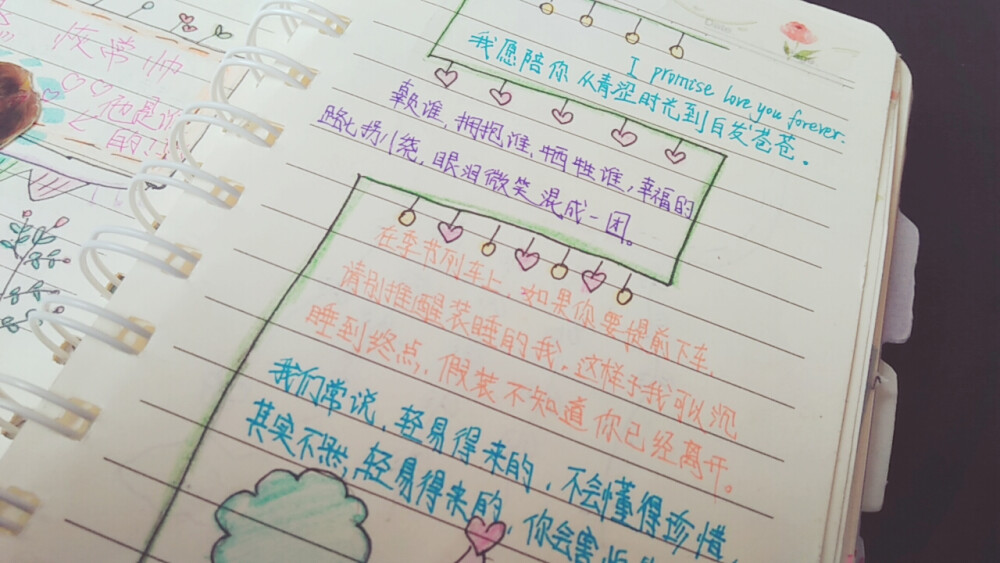 非常帅
他是谁
的
I promise love you forever.
我愿陪你从青涩时光到白发苍苍。
欺谁,拥抱谁,牺牲谁,幸福的
路七拐八绕,眼泪微笑混成一团。
在季节列车上,如果你要提前下车,
请别推醒装睡的我,这样子我可以沉
睡到终点,假装不知道你已经离开。
我们常说,轻易得来的,不会懂得珍惜,
其实不然,轻易得来的,你会害怕